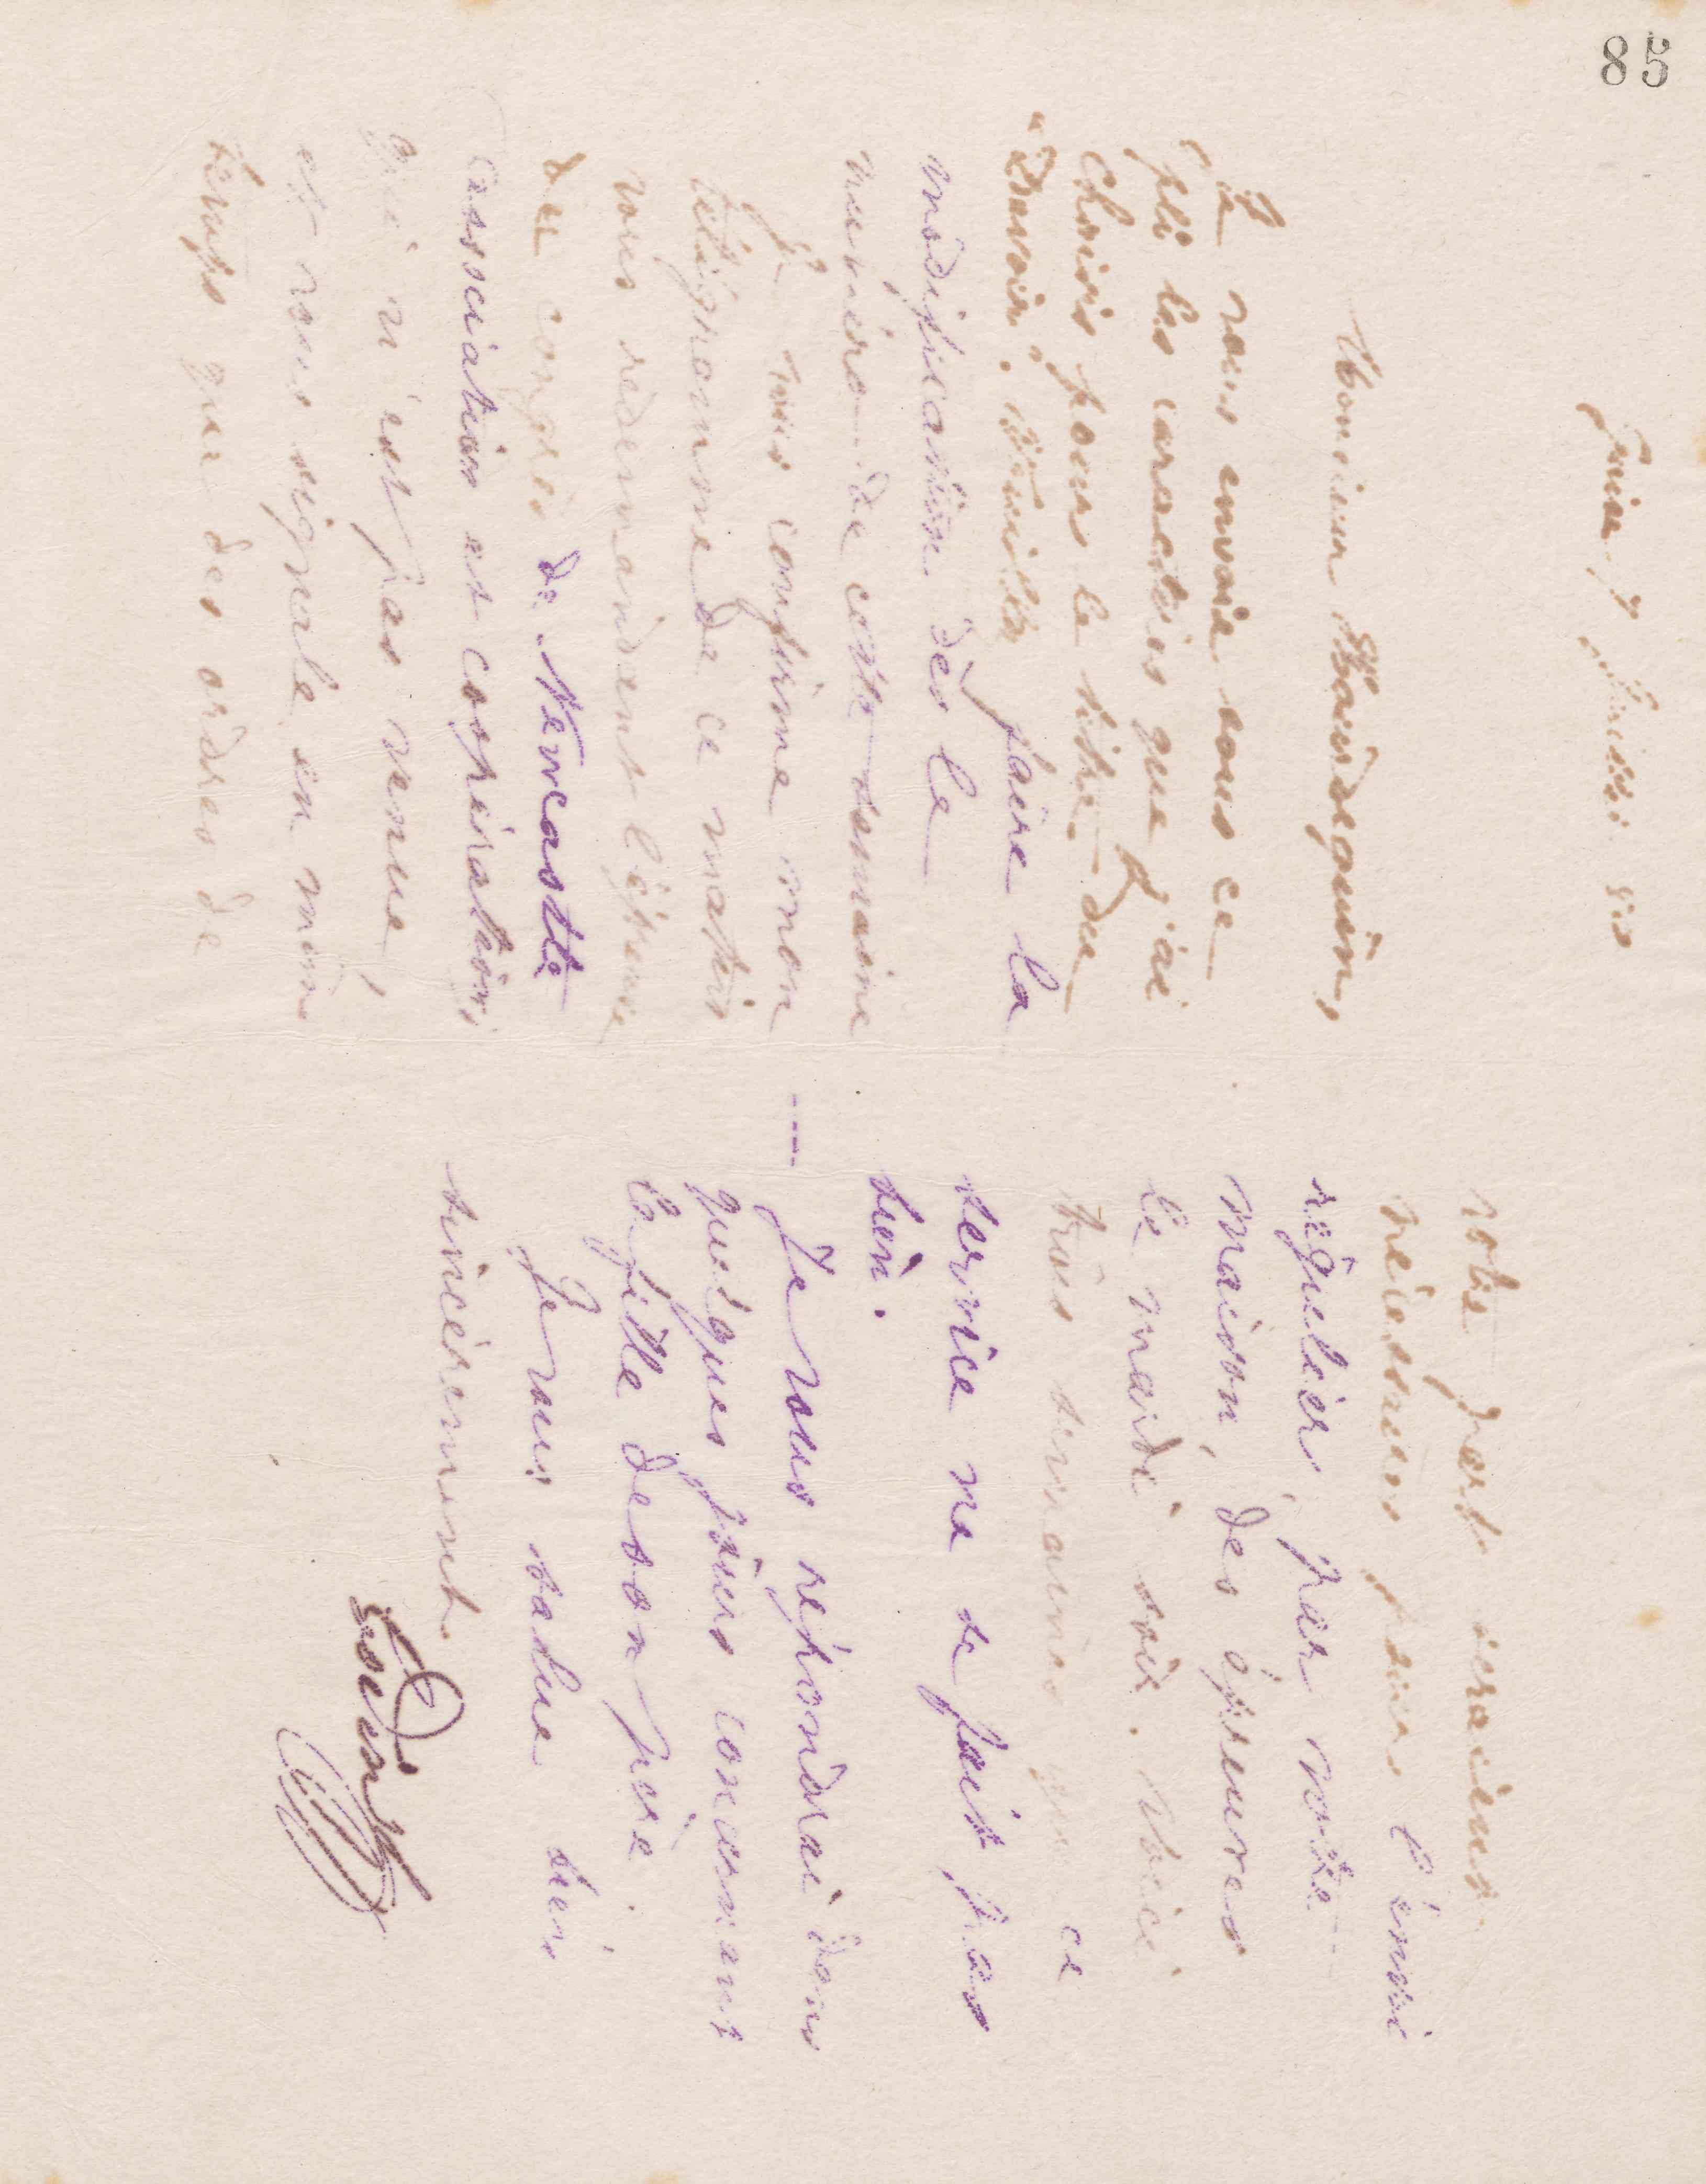 85
Guise 7 Juillet 90
Monsieur Baudequin,
Je vous envoie sous ce
pli les caractères que j'ai
choisis pour le titre du
"Devoir". Veuillez faire la
modification dès le
numéro de cette semaine
Je vous confirme mon
télégramme de ce matin
vous redemandant l'épreuve
du congrès de Newcastle
l'association et coopération
qui n'est pas venue,
et vous signale en même
temps que des ordres de
votre part seraient
nécessaires pour l'envoi
régulier, par votre
maison, des épreuves
le mardi soir. Voici
trois semaines que ce
service ne se fait pas
bien.
— Je vous répondrai dans
quelques jours concernant
la fille de son père.
Je vous salue bien
sincèrement.